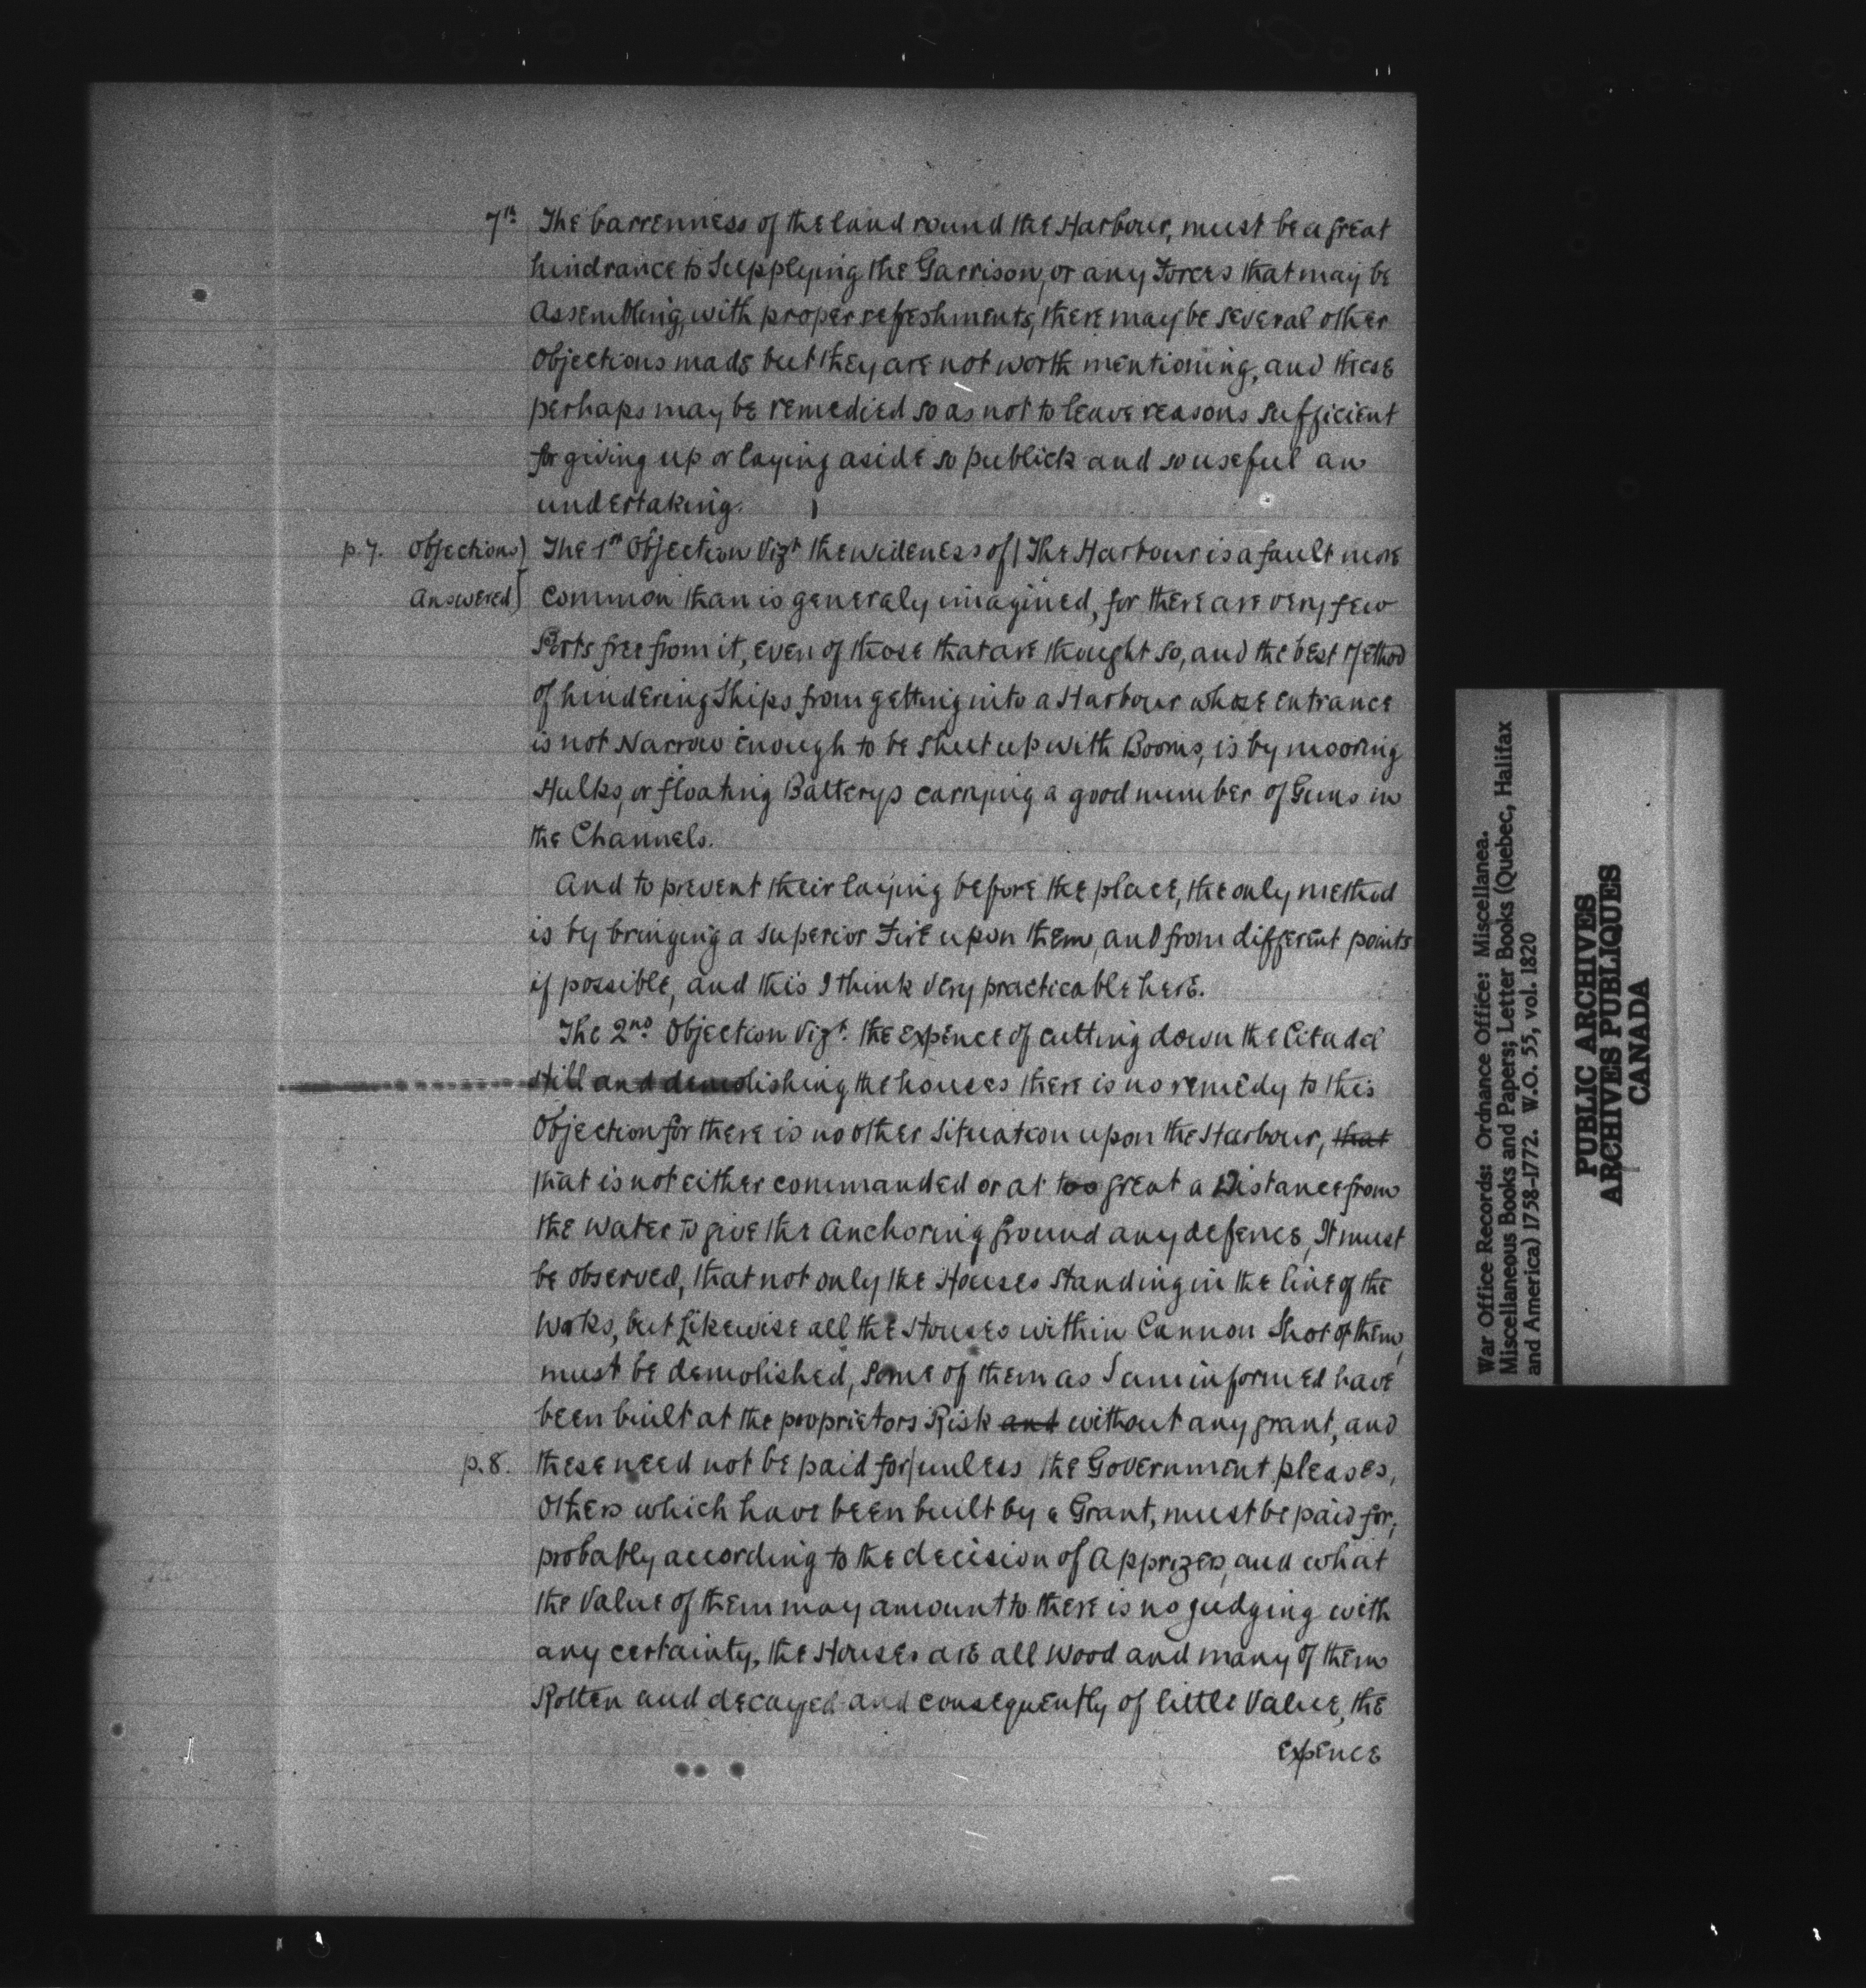 7th The barrenness of the land round the Harbour, must be a great
hindrance to Supplying the Garrison, or any Forces that may be
Assembling, with proper refreshments, there may be several other
Objections made but they are not worth mentioning, and these
perhaps may be remedied so as not to leave reasons sufficient
for giving up or laying aside so publick and so useful an
undertaking.
p.7. Objections) The 1st Objection Vizt the wideness of | The Harbour is a fault more
Answered] common than is generaly imagined, for there are very few
Ports free from it, even of those that are thought so, and the best Method
of hindering Ships from getting into a Harbour whose entrance
is not Narrow enough to be shut up with Booms, is by mooring
Hulks, or floating Batterys carrying a good number of Guns in
the Channels.
And to prevent their laying before the place, the only method
is by bringing a superior Fire upon them, and from different points
if possible, and this I think very practicable here.
The 2nd Objection Vizt. the expence of cutting down the Citadel
Hill and demolishing the houses there is no remedy to this
Objection for there is no other Situation upon the Harbour, that
that is not either commanded or at too great a Distance from
the Water to give the Anchoring ground any defence, It must
be observed, that not only the Houses Standing in the line of the
Works, but Likewise all the Houses within Cannon Shot of them,
must be demolished, some of them as I am informed have
been built at the proprietors Risk and without any grant, and
p.8. these need not be paid for | unless the Government pleases,
Others which have been built by a Grant, must be paid for,
probably according to the decision of Apprizers, and what
the Value of them may amount to there is no judging with
any certainty, the Houses are all Wood and many of them
Rotten and decayed and consequently of little Value, the
expence
War Office Records: Ordnance Office: Miscellanea.
Miscellaneous Books and Papers; Letter Books (Quebec, Halifax
and America) 1758-1772. W.O. 55, vol. 1820
PUBLIC ARCHIVES
ARCHIVES PUBLIQUES
CANADA